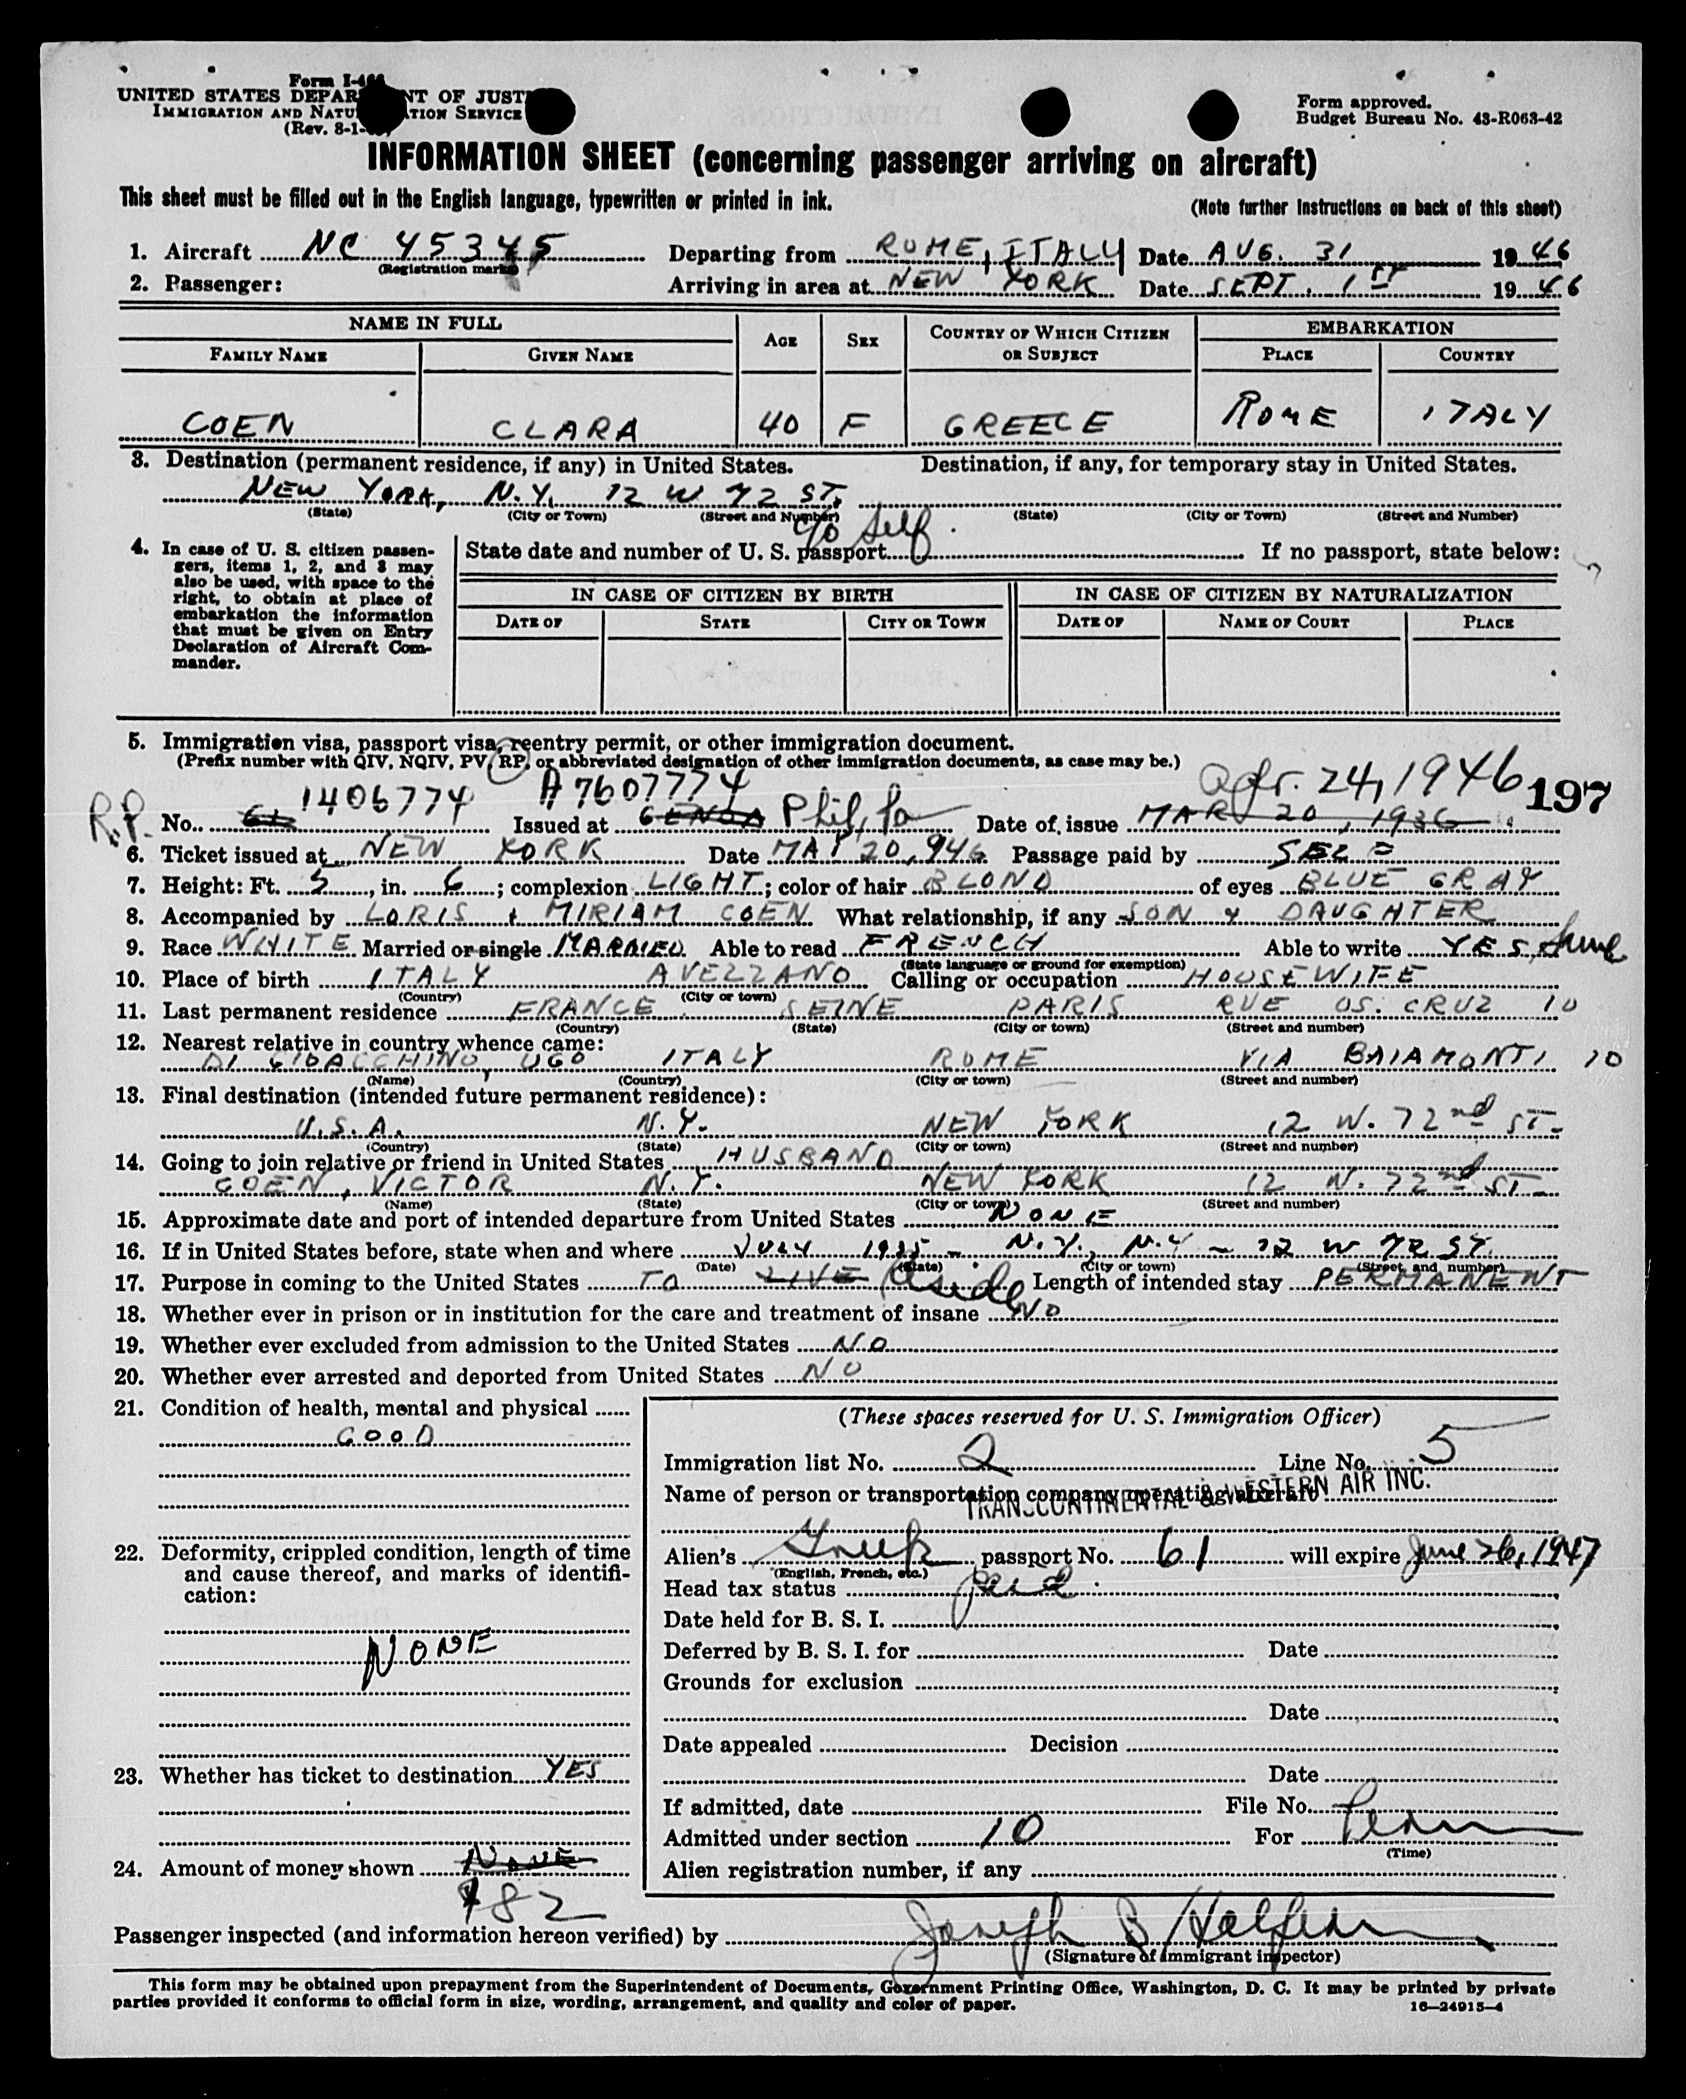 Form I-466
UNITED STATES DEPARTMENT OF JUSTICE
IMMIGRATION AND NATURALIZATION SERVICE
(Rev. 8-1-
Form approved.
Budget Bureau No. 43-R063-42
INFORMATION SHEET (concerning passenger arriving on aircraft)
This sheet must be filled out in the English language, typewritten or printed in ink.
(Note further instructions on back of this sheet)
1. Aircraft NC 45345 Departing from ROME, ITALY Date AUG. 31 1946
(Registration marks)
2. Passenger: Arriving in area at NEW YORK Date SEPT. 1ST 1946
NAME IN FULL AGE SEX COUNTRY OF WHICH CITIZEN OR SUBJECT EMBARKATION
FAMILY NAME GIVEN NAME PLACE COUNTRY
COEN CLARA 40 F GREECE ROME ITALY
3. Destination (permanent residence, if any) in United States. Destination, if any, for temporary stay in United States.
NEW YORK, N.Y. 12 W 72 ST.
(State) (City or Town) (Street and Number) (State) (City or Town) (Street and Number)
c/o Self
4. In case of U. S. citizen passengers, items 1, 2, and 3 may also be used, with space to the right, to obtain at place of embarkation the information that must be given on Entry Declaration of Aircraft Commander.
State date and number of U. S. passport If no passport, state below:
IN CASE OF CITIZEN BY BIRTH IN CASE OF CITIZEN BY NATURALIZATION
DATE OF STATE CITY OR TOWN DATE OF NAME OF COURT PLACE
5. Immigration visa, passport visa, reentry permit, or other immigration document.
(Prefix number with QIV, NQIV, PV, RP, or abbreviated designation of other immigration documents, as case may be.)
1406774 A7607774 Apr. 24, 1946 197
R.P. No. Issued at GENOA Phil, Pa Date of issue MAR 20, 1936
6. Ticket issued at NEW YORK Date MAY 20, 946 Passage paid by SELF
7. Height: Ft. 5, in. 6; complexion LIGHT; color of hair BLOND of eyes BLUE GRAY
8. Accompanied by LORIS & MIRIAM COEN What relationship, if any SON & DAUGHTER
9. Race WHITE Married or single MARRIED Able to read FRENCH Able to write YES, Same
(State language or ground for exemption)
10. Place of birth ITALY AVEZZANO Calling or occupation HOUSEWIFE
(Country) (City or town)
11. Last permanent residence FRANCE SEINE PARIS RUE OS. CRUZ 10
(Country) (State) (City or town) (Street and number)
12. Nearest relative in country whence came:
DI GIOACCHINO, UGO ITALY ROME VIA BAIAMONTI 10
(Name) (Country) (City or town) (Street and number)
13. Final destination (intended future permanent residence):
U.S.A. N.Y. NEW YORK 12 W. 72nd ST.
(Country) (State) (City or town) (Street and number)
14. Going to join relative or friend in United States HUSBAND
COEN, VICTOR N.Y. NEW YORK 12 W. 72nd ST
(Name) (State) (City or town) (Street and number)
15. Approximate date and port of intended departure from United States NONE
16. If in United States before, state when and where JULY N.Y., N.Y - 12 W 72 ST.
(Date) (State) (City or town) (Street and number)
17. Purpose in coming to the United States TO LIVE Reside Length of intended stay PERMANENT
18. Whether ever in prison or in institution for the care and treatment of insane NO
19. Whether ever excluded from admission to the United States NO
20. Whether ever arrested and deported from United States NO
21. Condition of health, mental and physical
GOOD
22. Deformity, crippled condition, length of time and cause thereof, and marks of identification:
NONE
23. Whether has ticket to destination YES
24. Amount of money shown NONE
$82
(These spaces reserved for U. S. Immigration Officer)
Immigration list No. 2 Line No. 5
Name of person or transportation company operating aircraft TRANSCONTINENTAL & WESTERN AIR INC.
Alien's Greek passport No. 61 will expire June 26, 1947
(English, French, etc.)
Head tax status paid
Date held for B. S. I.
Deferred by B. S. I. for Date
Grounds for exclusion
Date
Date appealed Decision
Date
If admitted, date File No.
Admitted under section 10 For Perm
(Time)
Alien registration number, if any
Passenger inspected (and information hereon verified) by Joseph B Halpern
(Signature of immigrant inspector)
This form may be obtained upon prepayment from the Superintendent of Documents, Government Printing Office, Washington, D. C. It may be printed by private
parties provided it conforms to official form in size, wording, arrangement, and quality and color of paper. 16—24915-4